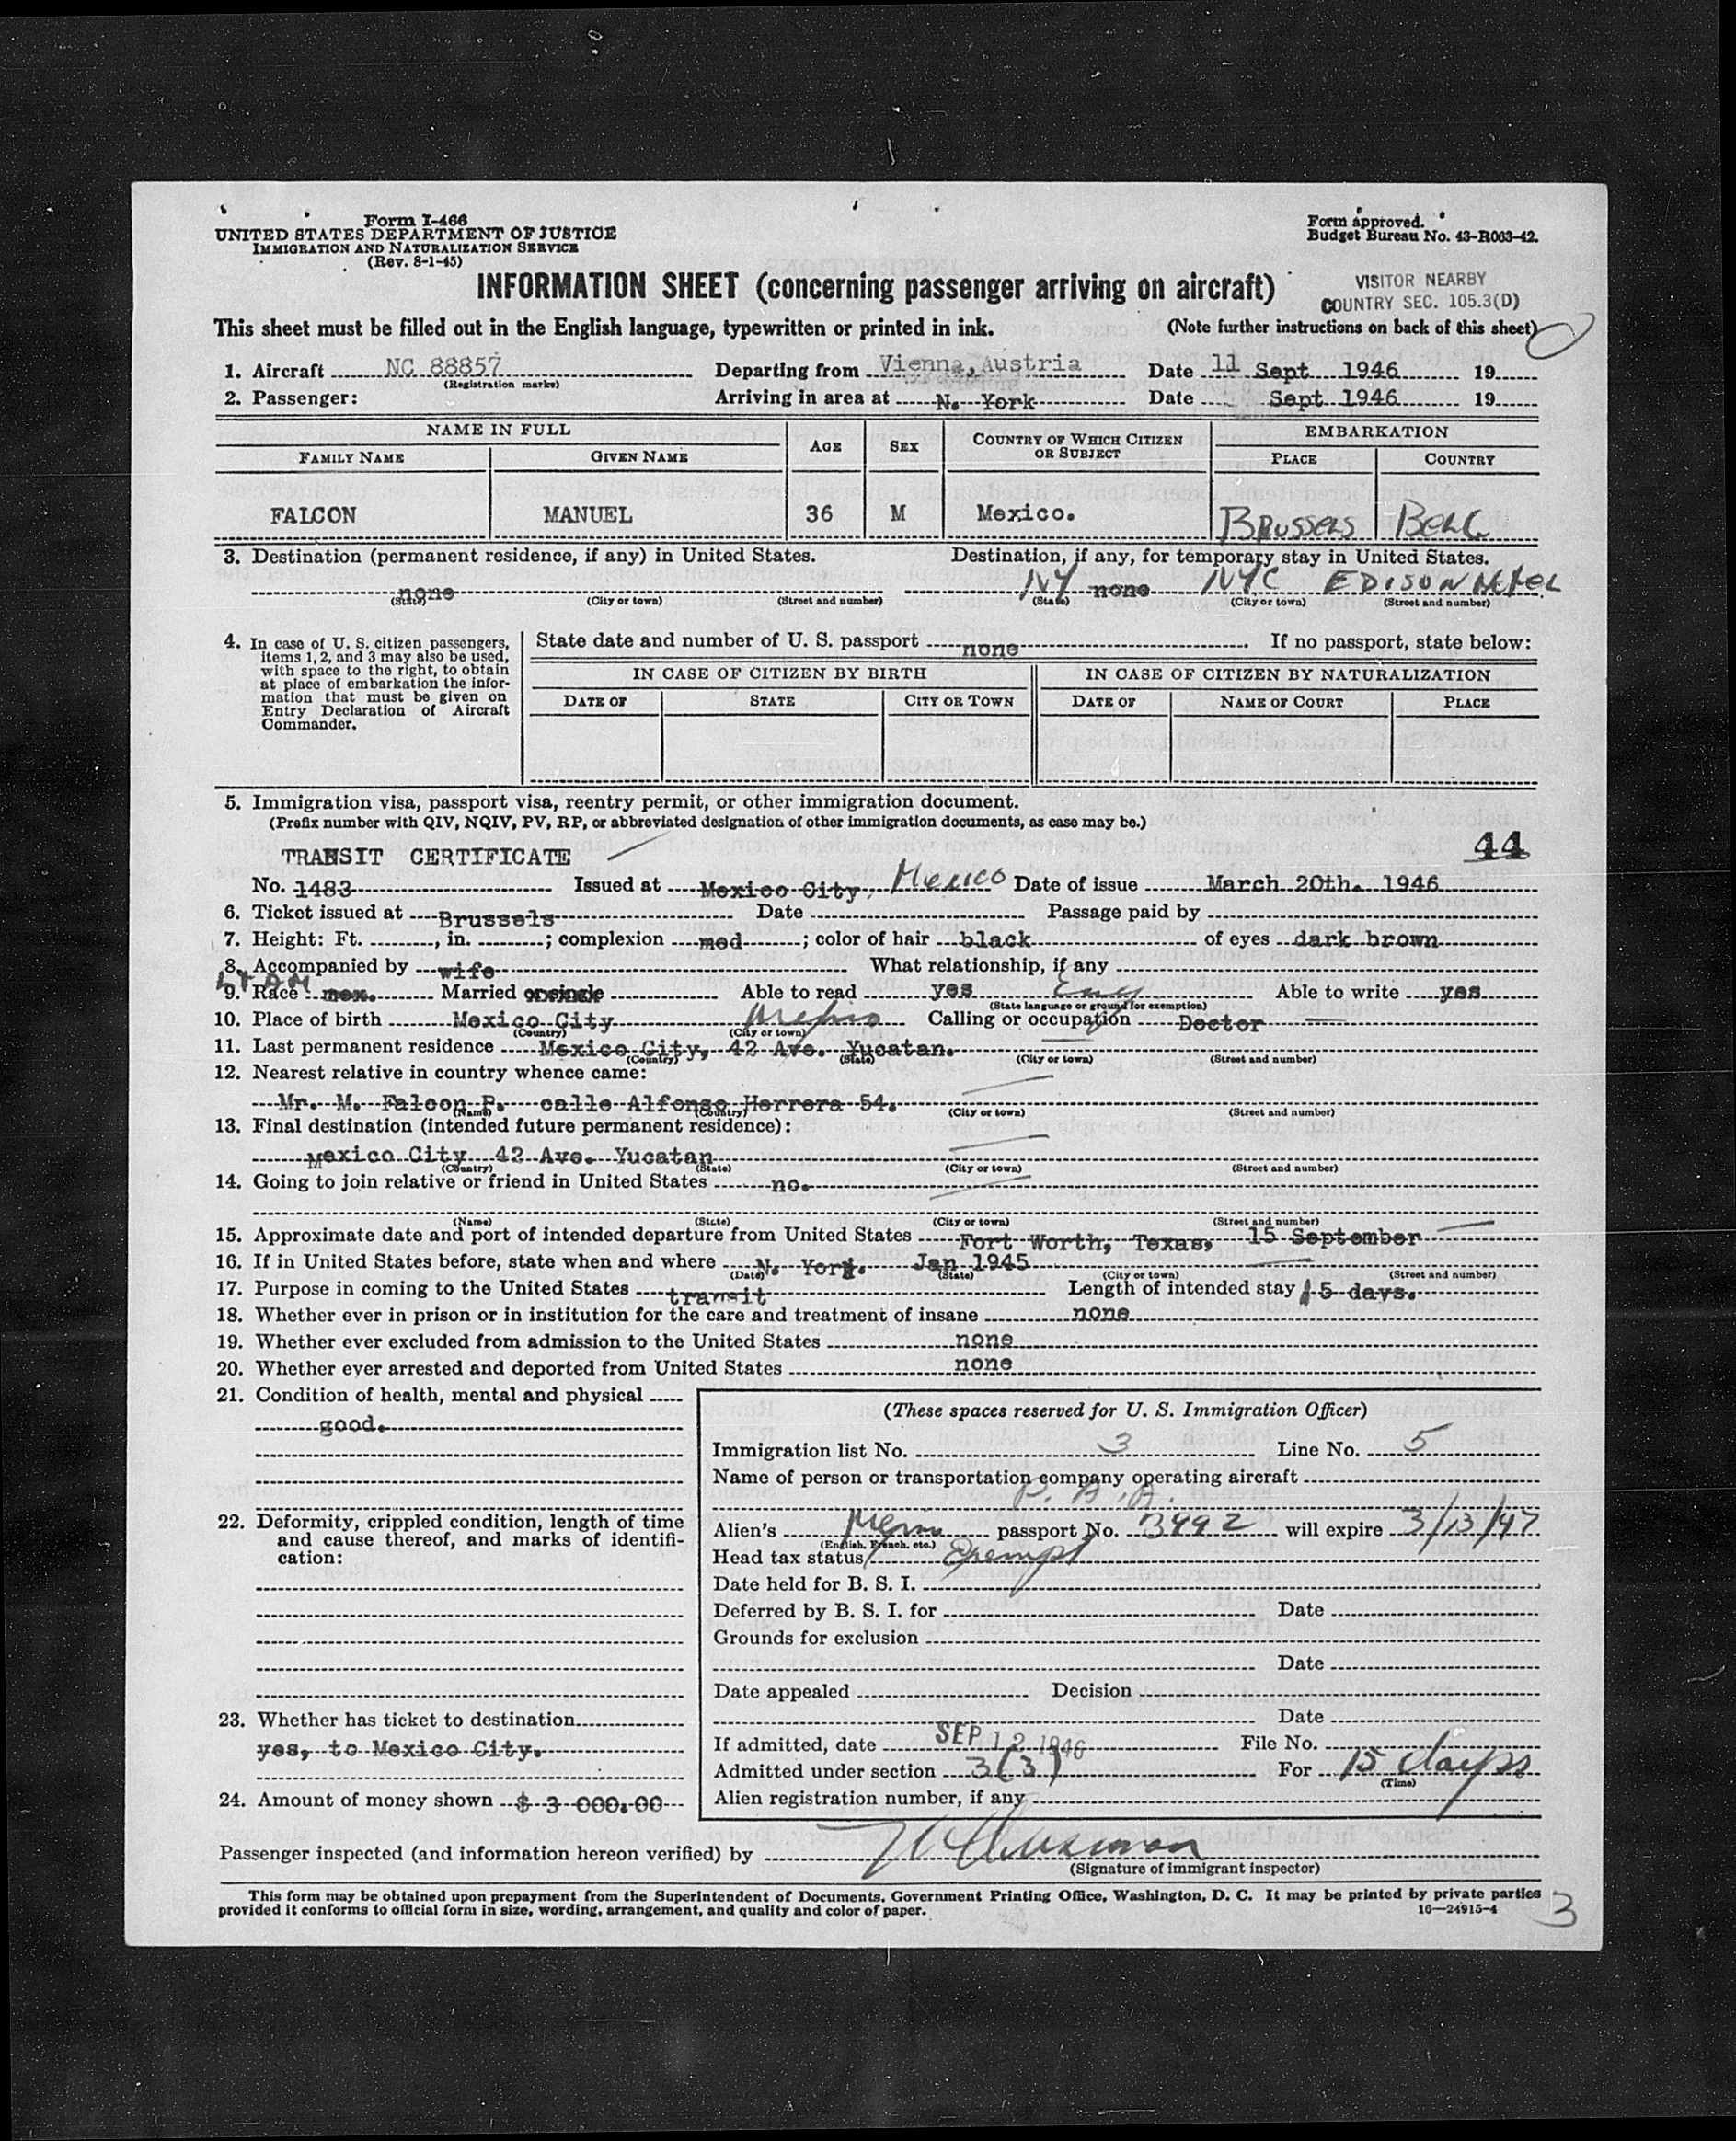 Form I-466
UNITED STATES DEPARTMENT OF JUSTICE
IMMIGRATION AND NATURALIZATION SERVICE
(Rev. 8-1-45)
Form approved.
Budget Bureau No. 43-R063-42.
INFORMATION SHEET (concerning passenger arriving on aircraft)
VISITOR NEARBY
COUNTRY SEC. 105.3(D)
This sheet must be filled out in the English language, typewritten or printed in ink. (Note further instructions on back of this sheet)
1. Aircraft NC 88857 Departing from Vienna, Austria Date 11 Sept 1946 19
(Registration marks)
2. Passenger: Arriving in area at N. York Date Sept 1946 19
NAME IN FULL AGE SEX COUNTRY OF WHICH CITIZEN OR SUBJECT EMBARKATION
FAMILY NAME GIVEN NAME PLACE COUNTRY
FALCON MANUEL 36 M Mexico. BRUSSELS BELG
3. Destination (permanent residence, if any) in United States. Destination, if any, for temporary stay in United States.
none NY none NYC EDISON HOTEL
(State) (City or town) (Street and number) (State) (City or town) (Street and number)
4. In case of U. S. citizen passengers, items 1, 2, and 3 may also be used, with space to the right, to obtain at place of embarkation the information that must be given on Entry Declaration of Aircraft Commander.
State date and number of U. S. passport none If no passport, state below:
IN CASE OF CITIZEN BY BIRTH IN CASE OF CITIZEN BY NATURALIZATION
DATE OF STATE CITY OR TOWN DATE OF NAME OF COURT PLACE
5. Immigration visa, passport visa, reentry permit, or other immigration document.
(Prefix number with QIV, NQIV, PV, RP, or abbreviated designation of other immigration documents, as case may be.)
TRANSIT CERTIFICATE 44
No. 1483 Issued at Mexico City, Mexico Date of issue March 20th. 1946
6. Ticket issued at Brussels Date Passage paid by
7. Height: Ft. , in. ; complexion med ; color of hair black of eyes dark brown
8. Accompanied by wife What relationship, if any
LT AM
9. Race mex. Married or single Able to read yes Eng Able to write yes
(State language or ground for exemption)
10. Place of birth Mexico City Mexico Calling or occupation Doctor
(Country) (City or town)
11. Last permanent residence Mexico City, 42 Ave. Yucatan.
(Country) (State) (City or town) (Street and number)
12. Nearest relative in country whence came:
Mr. M. Falcon P. calle Alfonso Herrera 54.
(Name) (Country) (City or town) (Street and number)
13. Final destination (intended future permanent residence):
Mexico City 42 Ave. Yucatan
(Country) (State) (City or town) (Street and number)
14. Going to join relative or friend in United States no.
(Name) (State) (City or town) (Street and number)
15. Approximate date and port of intended departure from United States Fort Worth, Texas, 15 September
16. If in United States before, state when and where N. York. Jan 1945
(Date) (State) (City or town) (Street and number)
17. Purpose in coming to the United States transit Length of intended stay 15 days.
18. Whether ever in prison or in institution for the care and treatment of insane none
19. Whether ever excluded from admission to the United States none
20. Whether ever arrested and deported from United States none
21. Condition of health, mental and physical
good.
22. Deformity, crippled condition, length of time and cause thereof, and marks of identification:
23. Whether has ticket to destination
yes, to Mexico City.
24. Amount of money shown $ 3 000.00
(These spaces reserved for U. S. Immigration Officer)
Immigration list No. 3 Line No. 5
Name of person or transportation company operating aircraft
P. A. A.
Alien's Mexican passport No. 3492 will expire 3/13/47
(English, French, etc.)
Head tax status Exempt
Date held for B. S. I.
Deferred by B. S. I. for Date
Grounds for exclusion
Date
Date appealed Decision
Date
If admitted, date SEP 12 1946 File No.
Admitted under section 3(3) For 15 days
(Time)
Alien registration number, if any
Passenger inspected (and information hereon verified) by
(Signature of immigrant inspector)
This form may be obtained upon prepayment from the Superintendent of Documents, Government Printing Office, Washington, D. C. It may be printed by private parties
provided it conforms to official form in size, wording, arrangement, and quality and color of paper. 16—24915-4
3